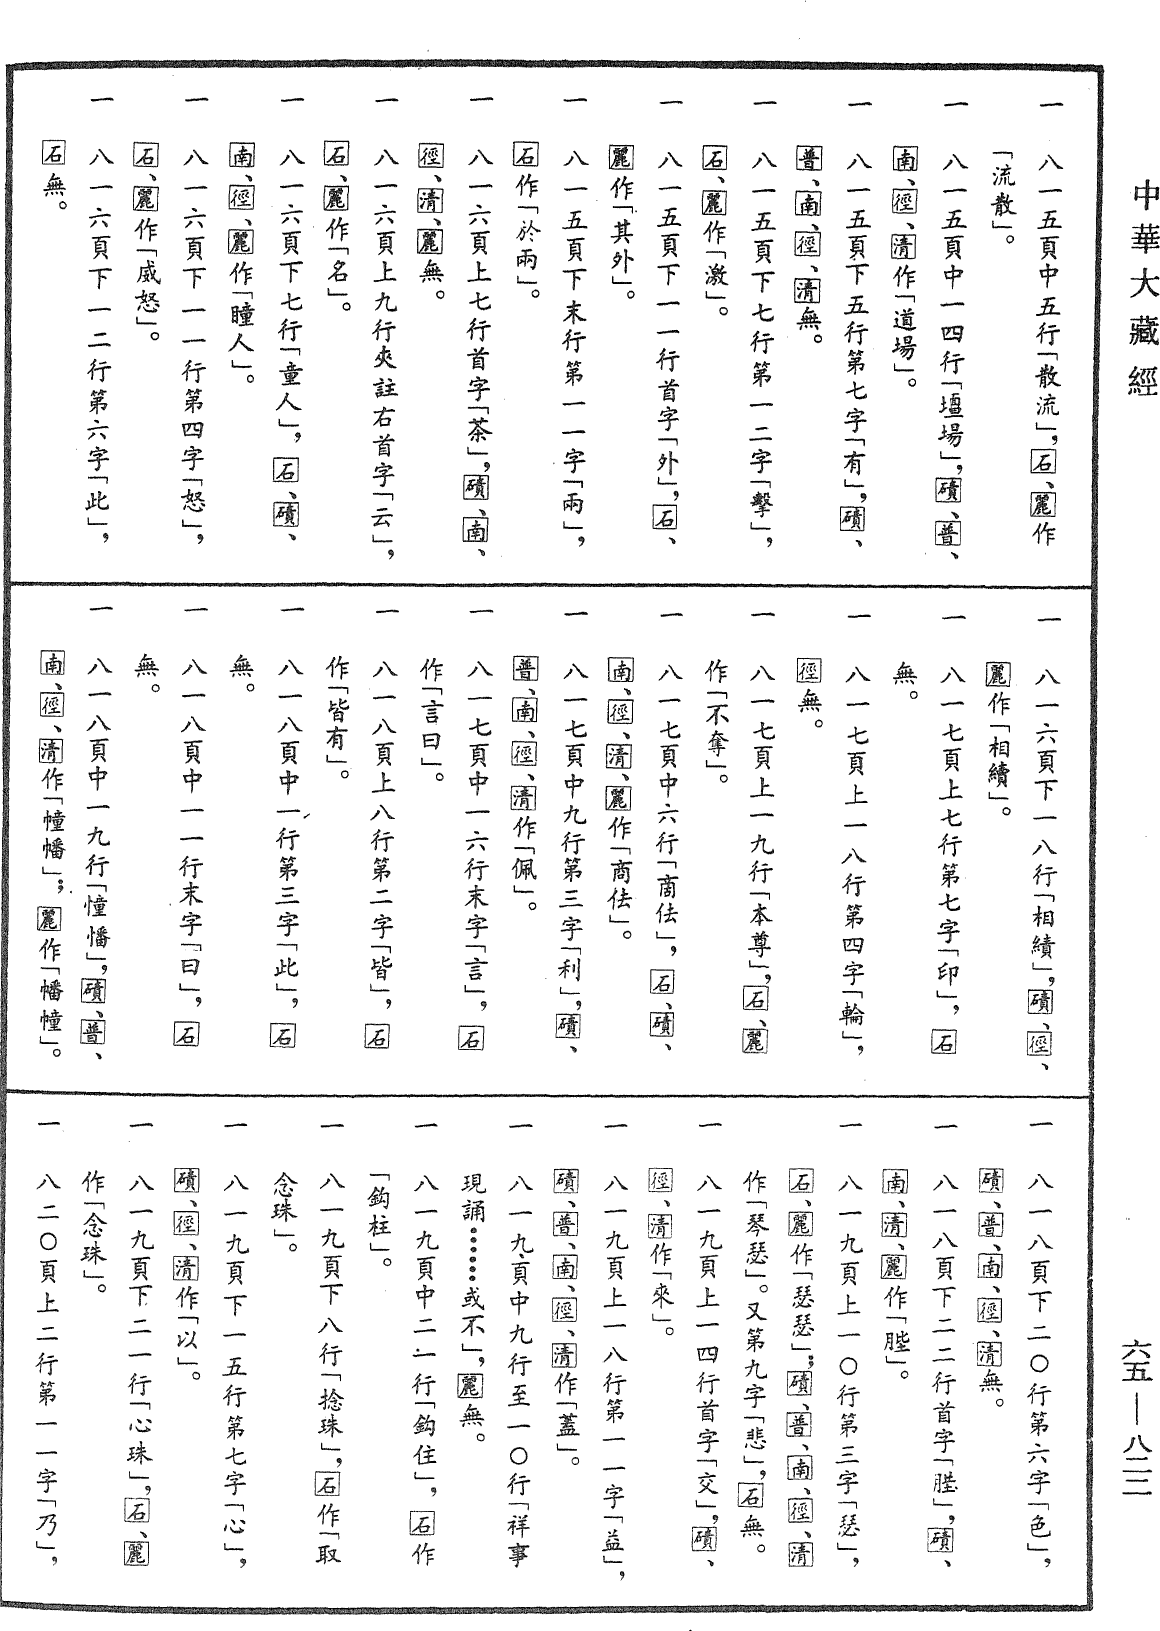 中華大藏經
一 八一五頁中五行「散流」，石、麗作
「流散」。
一 八一五頁中一四行「壇場」，磧、普、
南、徑、清作「道場」。
一 八一五頁下五行第七字「有」，磧、
普、南、徑、清無。
一 八一五頁下七行第一二字「擊」，
石、麗作「激」。
一 八一五頁下一一行首字「外」，石、
麗作「其外」。
一 八一五頁下末行第一一字「兩」，
石作「於兩」。
一 八一六頁上七行首字「茶」，磧、南、
徑、清、麗無。
一 八一六頁上九行夾註右首字「云」，
石、麗作「名」。
一 八一六頁下七行「童人」，石、磧、
南、徑、麗作「瞳人」。
一 八一六頁下一一行第四字「怒」，
石、麗作「威怒」。
一 八一六頁下一二行第六字「此」，
石無。
一 八一六頁下一八行「相績」，磧、徑、
麗作「相續」。
一 八一七頁上七行第七字「印」，石
無。
一 八一七頁上一八行第四字「輪」，
徑無。
一 八一七頁上一九行「本尊」，石、麗
作「不奪」。
一 八一七頁中六行「啇佉」，石、磧、
南、徑、清、麗作「商佉」。
一 八一七頁中九行第三字「利」，磧、
普、南、徑、清作「佩」。
一 八一七頁中一六行末字「言」，石
作「言曰」。
一 八一八頁上八行第二字「皆」，石
作「皆有」。
一 八一八頁中一行第三字「此」，石
無。
一 八一八頁中一一行末字「曰」，石
無。
一 八一八頁中一九行「憧憣」，磧、普、
南、徑、清作「幢幡」；麗作「幡幢」。
一 八一八頁下二〇行第六字「色」，
磧、普、南、徑、清無。
一 八一八頁下二二行首字「䏶」，磧、
南、清、麗作「䏶」。
一 八一九頁上一〇行第三字「瑟」，
石、麗作「瑟瑟」；磧、普、南、徑、清
作「琴瑟」。又第九字「悲」，石無。
一 八一九頁上一四行首字「交」，磧、
徑、清作「來」。
一 八一九頁上一八行第一一字「益」，
磧、普、南、徑、清作「蓋」。
一 八一九頁中九行至一〇行「祥事
現誦……或不」，麗無。
一 八一九頁中二一行「鈎住」，石作
「鈎柱」。
一 八一九頁下八行「捻珠」，石作「取
念珠」。
一 八一九頁下一五行第七字「心」，
磧、徑、清作「以」。
一 八一九頁下二一行「心珠」，石、麗
作「念珠」。
一 八二〇頁上二行第一一字「乃」，
六五—八二二